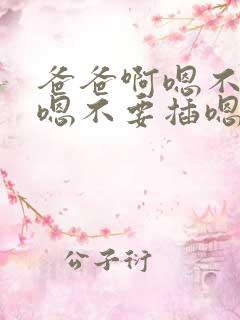 爸爸啊嗯不
嗯不要插嗯
公子衍